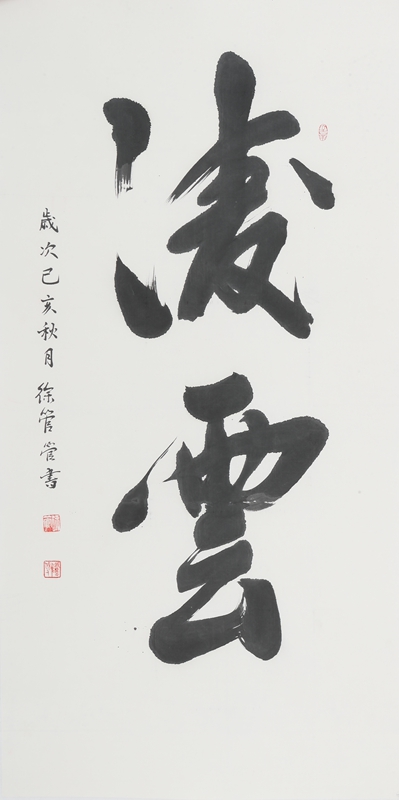 凌雲
歲次己亥秋月徐管管書